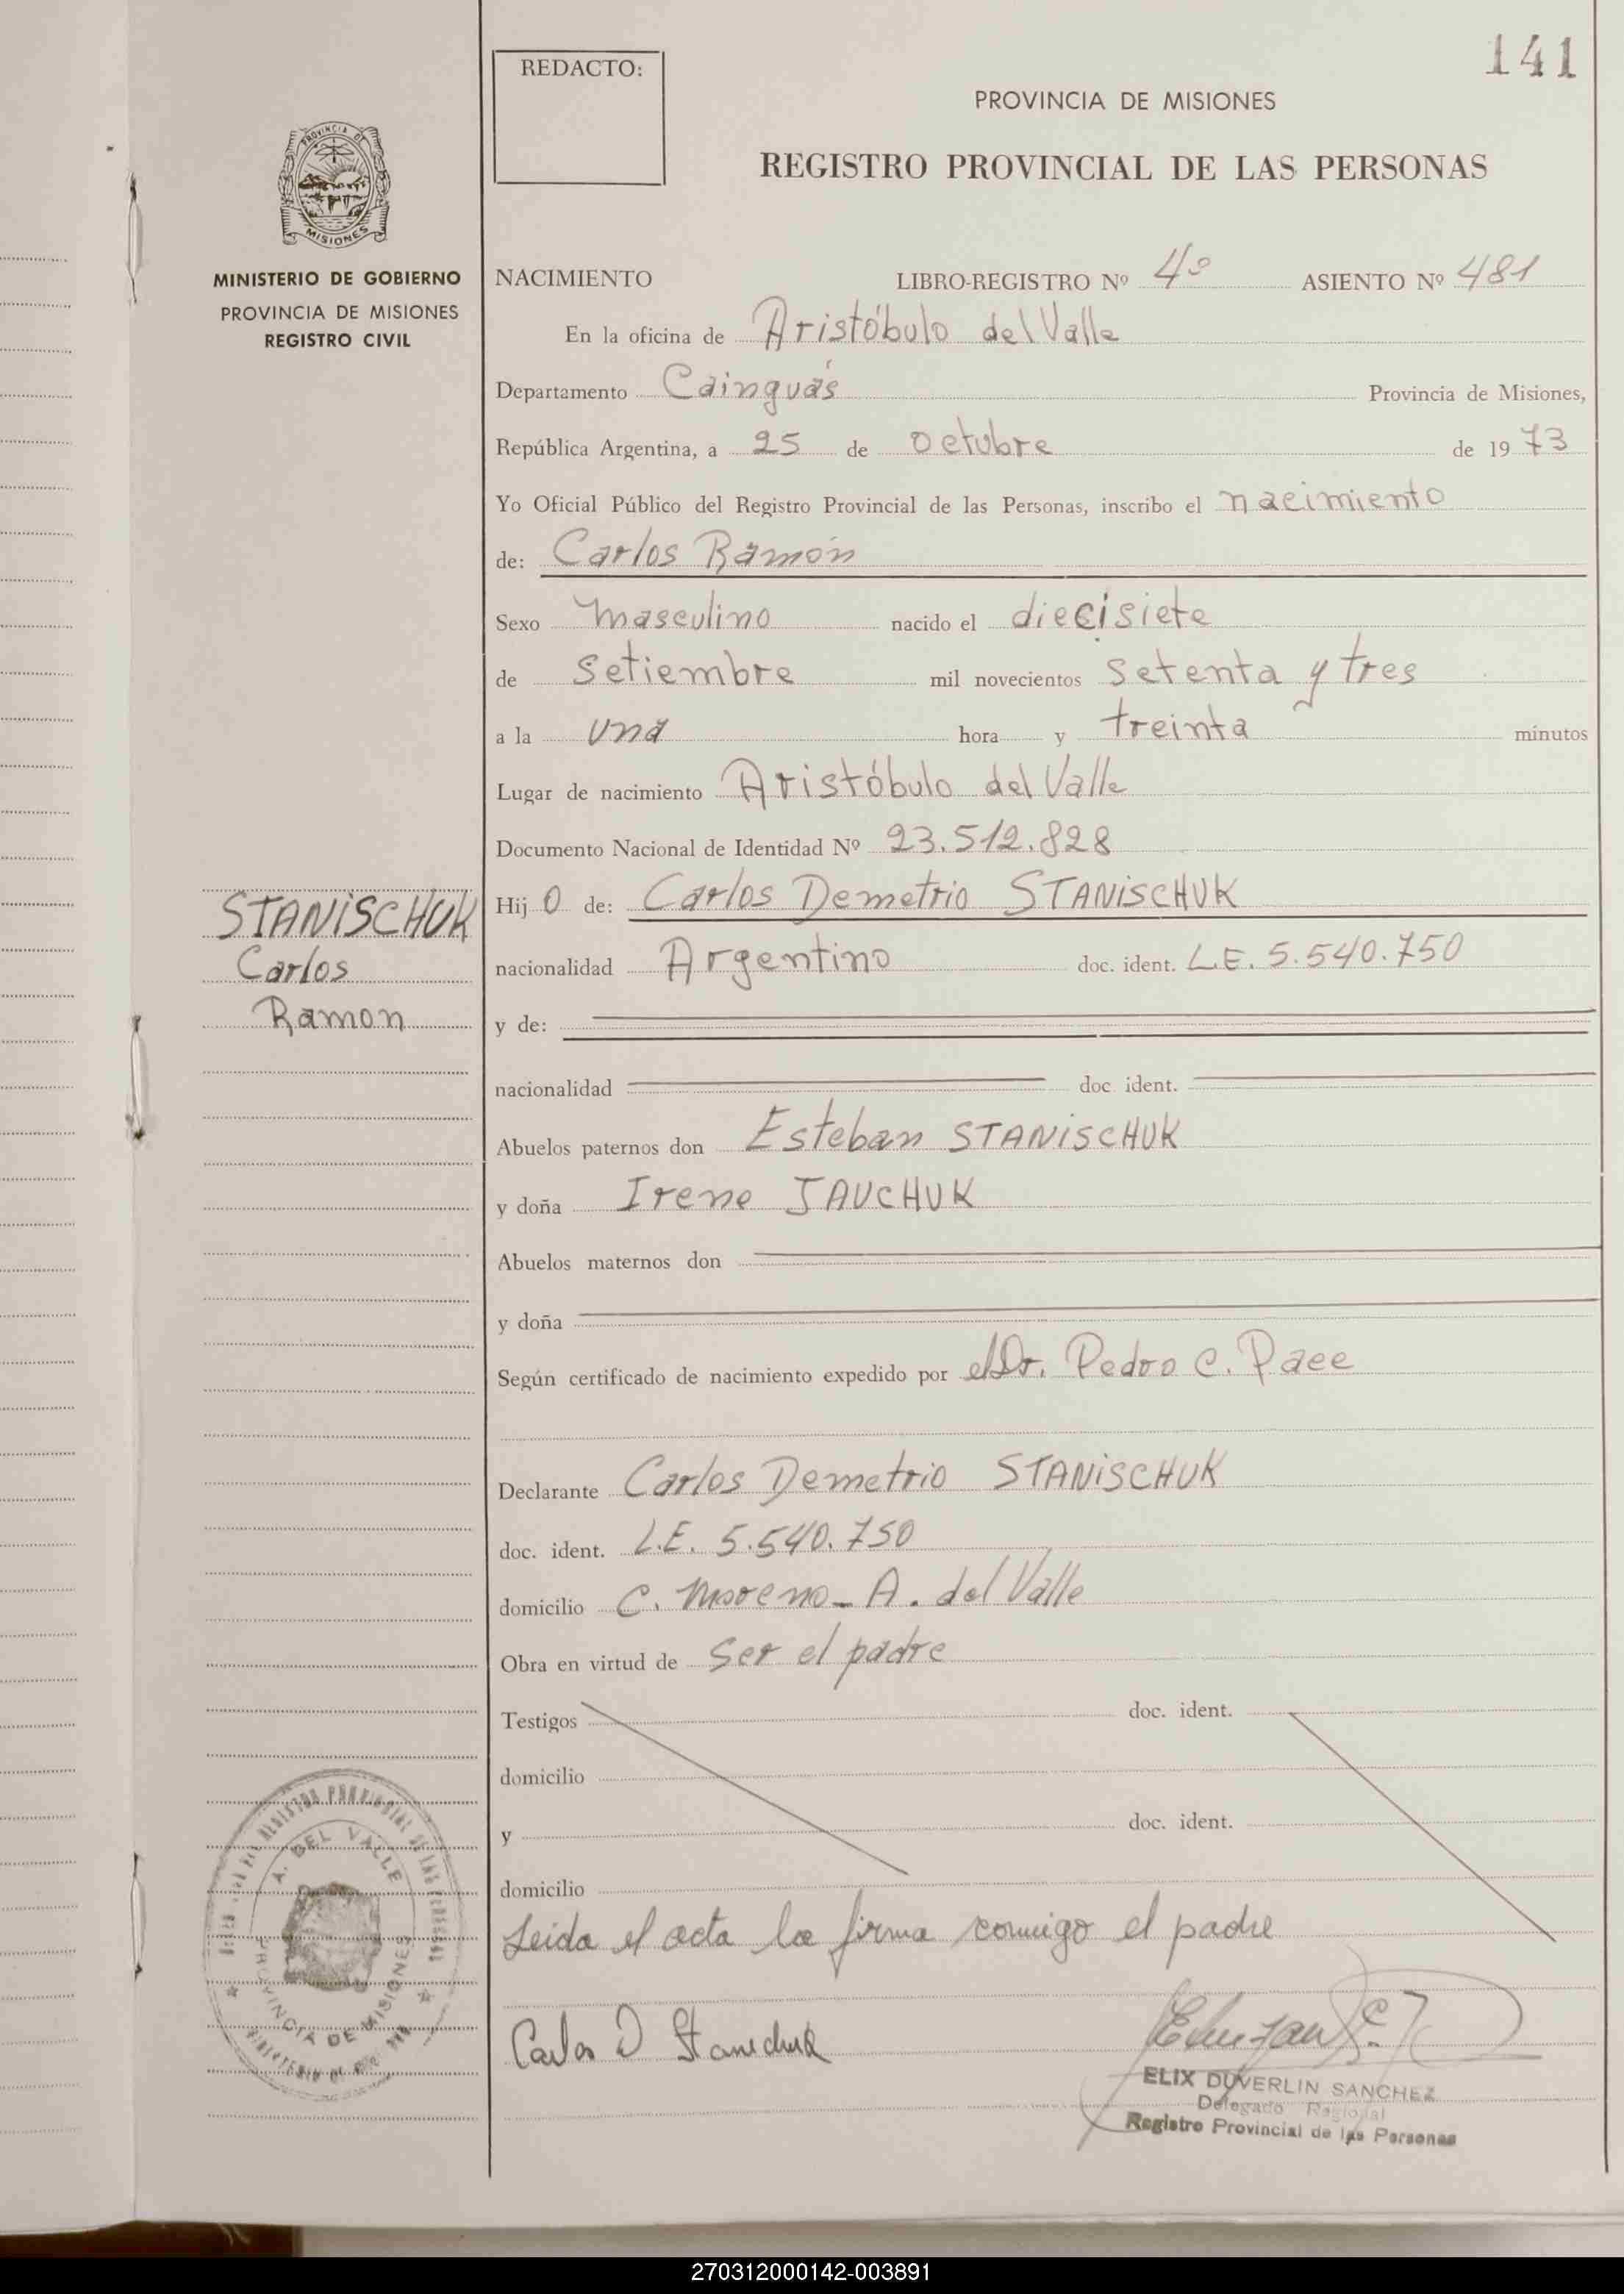 141
REDACTO:
PROVINCIA DE MISIONES
REGISTRO PROVINCIAL DE LAS PERSONAS
PROVINCIA DE
MISIONES
MINISTERIO DE GOBIERNO
PROVINCIA DE MISIONES
REGISTRO CIVIL
NACIMIENTO LIBRO-REGISTRO Nº 4º ASIENTO Nº 481
En la oficina de Aristóbulo del Valle
Departamento Cainguás Provincia de Misiones,
República Argentina, a 25 de octubre de 1973
Yo Oficial Público del Registro Provincial de las Personas, inscribo el nacimiento
de: Carlos Ramón
Sexo masculino nacido el diecisiete
de setiembre mil novecientos setenta y tres
a la una hora y treinta minutos
Lugar de nacimiento Aristóbulo del Valle
Documento Nacional de Identidad Nº 23.512.828
Hij o de: Carlos Demetrio STANISCHUK
STANISCHUK
Carlos
Ramon
nacionalidad Argentino doc. ident. L.E. 5.540.750
y de:
nacionalidad doc. ident.
Abuelos paternos don Esteban STANISCHUK
y doña Irene JAUCHUK
Abuelos maternos don
y doña
Según certificado de nacimiento expedido por el Dr. Pedro C. Paee
Declarante Carlos Demetrio STANISCHUK
doc. ident. L.E. 5.540.750
domicilio C. Moreno - A. del Valle
Obra en virtud de ser el padre
Testigos doc. ident.
domicilio
y doc. ident.
domicilio
Leida el acta la firma conmigo el padre
A. DEL VALLE
PROVINCIA DE MISIONES
Carlos D Stanischuk
ELIX DUVERLIN SANCHEZ
Delegado Regional
Registro Provincial de las Personas
270312000142-003891